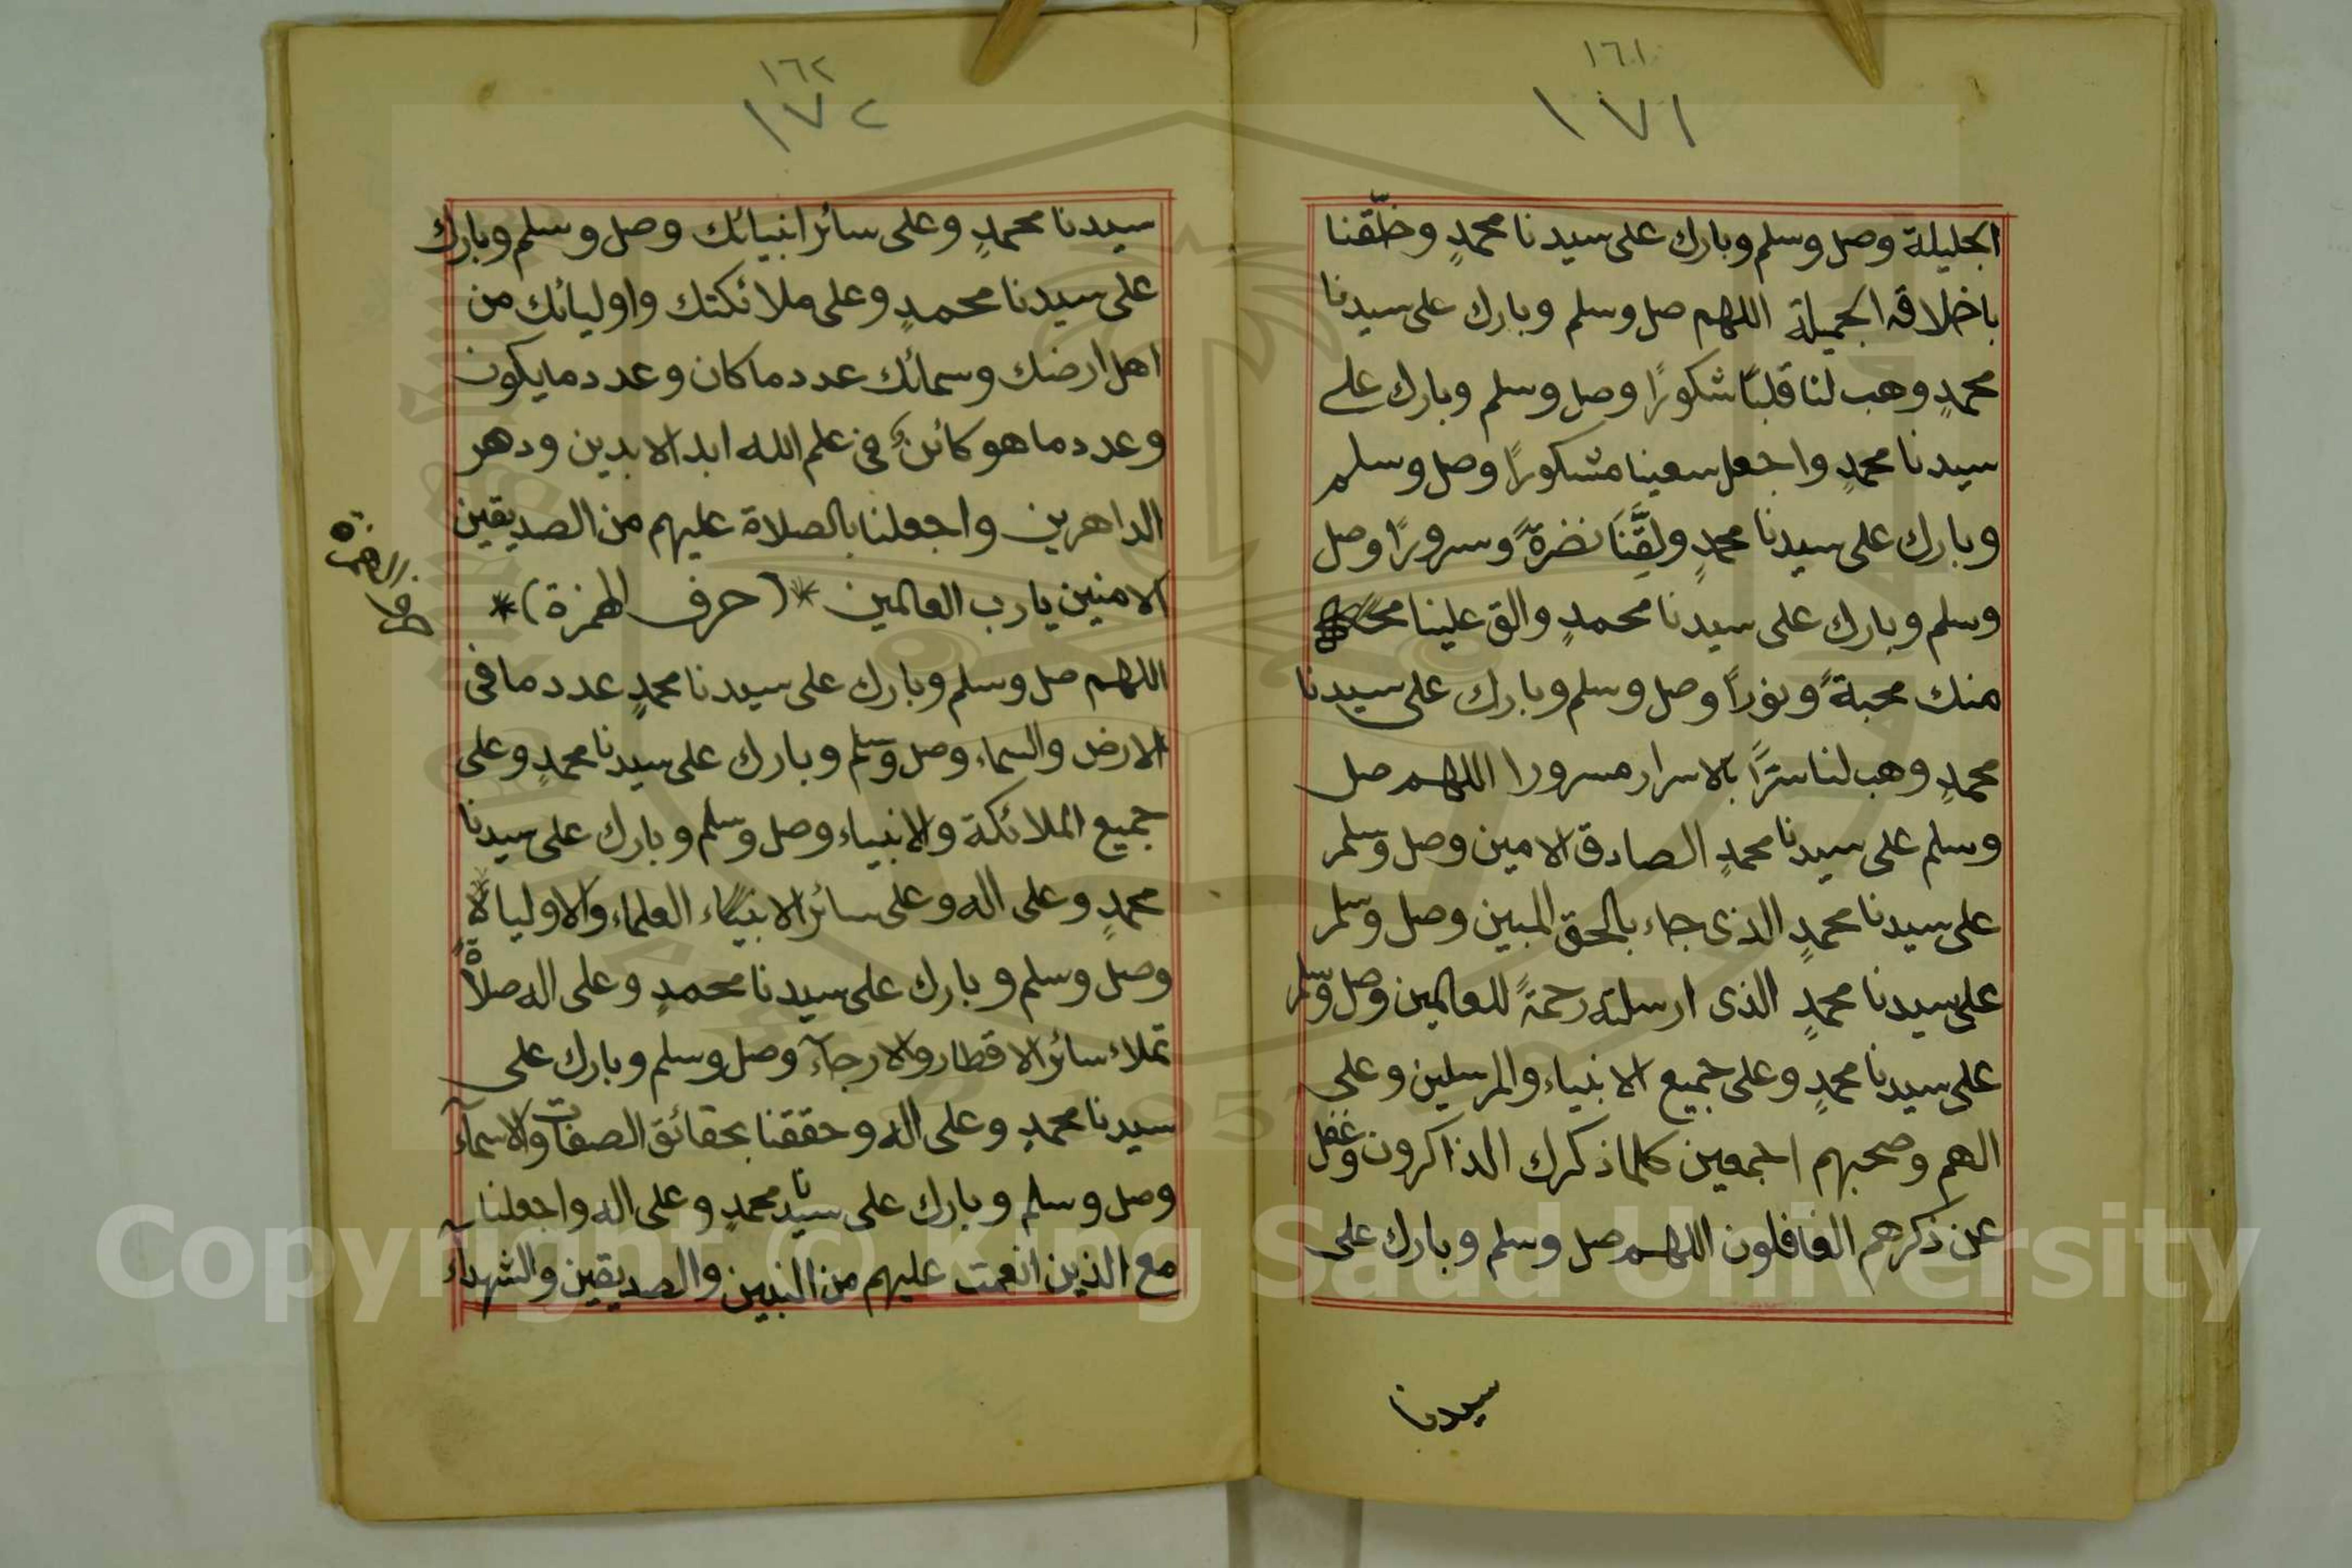 ١٦١
١٧١
الجليلة وصل وسلم وبارك على سيدنا محمدٍ وخلّقنا
باخلاقه الجميلة اللهم صل وسلم وبارك على سيدنا
محمدٍ وهب لنا قلبًا شكورًا وصل وسلم وبارك على
سيدنا محمدٍ واجعل سعينا مشكورًا وصل وسلم
وبارك على سيدنا محمدٍ ولقِّنَا نضرةً وسرورًا وصل
وسلم وبارك على سيدنا محمدٍ والق علينا
منك محبةً ونوراً وصل وسلم وبارك على سيدنا
محمدٍ وهب لنا سترًا بالاسرار مسرورا اللهم صل
وسلم على سيدنا محمدٍ الصادق الامين وصل وسلم
على سيدنا محمدٍ الذى جاء بالحق المبين وصل وسلم
على سيدنا محمدٍ الذى ارسلته رحمةً للعالمين وصل وسلم
على سيدنا محمدٍ وعلى جميع الانبياء والمرسلين وعلى
الهم وصحبهم اجمعين كلما ذكرك الذاكرون وغفل
عن ذكرهم الغافلون اللهم صل وسلم وبارك على
سيدنا
١٦٢
١٧٢
سيدنا محمدٍ وعلى سائر انبيائك وصل وسلم وبارك
على سيدنا محمدٍ وعلى ملائكتك واوليائك من
اهل ارضك وسمائك عدد ما كان وعدد ما يكون
وعدد ما هو كائنٌ فى علم الله ابد الابدين ودهر
الداهرين واجعلنا بالصلاة عليهم من الصديقين
الامنين يارب العالمين *(حرف الهمزة)*
حرف الهمزة
اللهم صل وسلم وبارك على سيدنا محمدٍ عدد ما فى
الارض والسماء وصل وسلم وبارك على سيدنا محمدٍ وعلى
جميع الملائكة والانبياء وصل وسلم وبارك على سيدنا
محمدٍ وعلى اله وعلى سائر الانبياء العلماء والاولياء
وصل وسلم وبارك على سيدنا محمدٍ وعلى اله صلاةً
تملاء سائر الاقطار والارجآء وصل وسلم وبارك على
سيدنا محمدٍ وعلى اله وحققنا بحقائق الصفات والاسمآء
وصل وسلم وبارك على سيدنا محمدٍ وعلى اله واجعلنا
مع الذين انعمت عليهم من النبيين والصديقين والشهدآء
Copyright © King Saud University